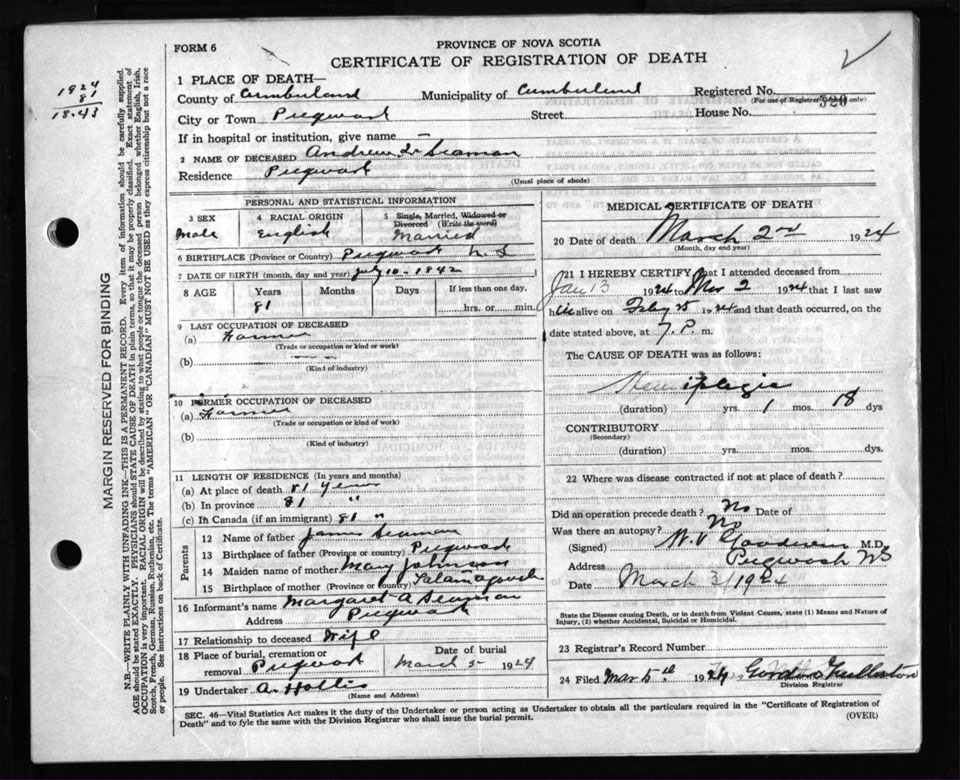 FORM 6
PROVINCE OF NOVA SCOTIA
CERTIFICATE OF REGISTRATION OF DEATH
1924
81
18.43
1 PLACE OF DEATH—
County of Cumberland Municipality of Cumberland Registered No. 320
(For use of Registrar only)
City or Town Pugwash Street House No.
If in hospital or institution, give name —
2 NAME OF DECEASED Andrew Seaman
Residence Pugwash
(Usual place of abode)
PERSONAL AND STATISTICAL INFORMATION
3 SEX Male
4 RACIAL ORIGIN English
5 Single, Married, Widowed or Divorced (Write the word) Married
6 BIRTHPLACE (Province or Country) Pugwash N.S
7 DATE OF BIRTH (month, day and year) July 10 - 1842
8 AGE Years 81 Months Days If less than one day, hrs. or min.
9 LAST OCCUPATION OF DECEASED
(a) Farmer
(Trade or occupation or kind or work)
(b) — —
(Kind of industry)
10 FORMER OCCUPATION OF DECEASED
(a) Farmer
(Trade or occupation or kind of work)
(b)
(Kind of industry)
11 LENGTH OF RESIDENCE (In years and months)
(a) At place of death 81 years
(b) In province 81 "
(c) In Canada (if an immigrant) 81 "
Parents
12 Name of father James Seaman
13 Birthplace of father (Province or country) Pugwash
14 Maiden name of mother Mary Johnson
15 Birthplace of mother (Province or Country)
16 Informant's name Margaret A Seaman
Address Pugwash
17 Relationship to deceased Wife
18 Place of burial, cremation or removal Pugwash
Date of burial March 5 - 1924
19 Undertaker A. Hollis
(Name and Address)
MEDICAL CERTIFICATE OF DEATH
20 Date of death March 2nd 1924
(Month, day and year)
21 I HEREBY CERTIFY that I attended deceased from
Jan 13 1924 to Mar 2 1924 that I last saw
h im alive on Feby 25 1924 and that death occurred, on the
date stated above, at 7. P. m.
The CAUSE OF DEATH was as follows:
Hemiplegia
(duration) yrs. 1 mos. 18 dys
CONTRIBUTORY
(Secondary)
(duration) yrs. mos. dys
22 Where was disease contracted if not at place of death?
Did an operation precede death? No Date of
Was there an autopsy? No
(Signed) Goodwin M.D.
Address Pugwash NS
Date March 3/1924
State the Disease causing Death, or in death from Violent Causes, state (1) Means and Nature of
Injury, (2) whether Accidental, Suicidal or Homicidal.
23 Registrar's Record Number
24 Filed Mar 5th 1924 Gordon Fullerton
Division Registrar
SEC. 46—Vital Statistics Act makes it the duty of the Undertaker or person acting as Undertaker to obtain all the particulars required in the "Certificate of Registration of
Death" and to fyle the same with the Division Registrar who shall issue the burial permit.
(OVER)
MARGIN RESERVED FOR BINDING
N.B.—WRITE PLAINLY WITH UNFADING INK—THIS IS A PERMANENT RECORD. Every item of information should be carefully supplied.
AGE should be stated EXACTLY. PHYSICIANS should STATE CAUSE OF DEATH in plain terms, so that it may be properly classified. Exact statement of
OCCUPATION is very important. RACIAL ORIGIN will be described by stating to what people or tongue the deceased person belonged whether English, Irish,
Scotch, French, German, Russian, Ruthenian, etc. The terms "AMERICAN" OR "CANADIAN" MUST NOT BE USED as they express citizenship but not a race
or people. See instructions on back of Certificate.